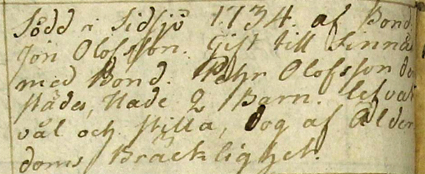 Född i Sidsjö 1734. af Bond.
Jon Olofsson. Gift till Sinnås
med Bond. Pehr Olofsson der
städes, Hade 2 Barn. lefvat
väl och stilla, dog af Ålder
doms Bräcklighet.